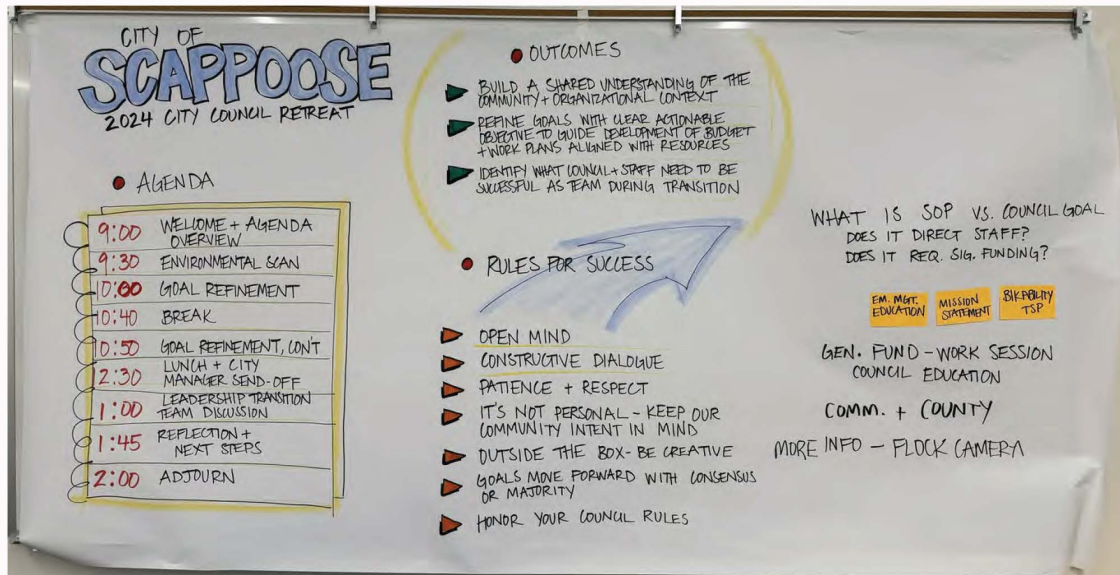 CITY OF
SCAPPOOSE
2024 CITY COUNCIL RETREAT
AGENDA
9:00 WELCOME + AGENDA
OVERVIEW
9:30 ENVIRONMENTAL SCAN
10:00 GOAL REFINEMENT
10:40 BREAK
10:50 GOAL REFINEMENT, CON'T
12:30 LUNCH + CITY
MANAGER SEND-OFF
1:00 LEADERSHIP TRANSITION
TEAM DISCUSSION
1:45 REFLECTION +
NEXT STEPS
2:00 ADJOURN
OUTCOMES
BUILD A SHARED UNDERSTANDING OF THE
COMMUNITY + ORGANIZATIONAL CONTEXT
REFINE GOALS WITH CLEAR ACTIONABLE
OBJECTIVE TO GUIDE DEVELOPMENT OF BUDGET
+ WORK PLANS ALIGNED WITH RESOURCES
IDENTIFY WHAT COUNCIL + STAFF NEED TO BE
SUCCESSFUL AS TEAM DURING TRANSITION
RULES FOR SUCCESS
OPEN MIND
CONSTRUCTIVE DIALOGUE
PATIENCE + RESPECT
IT'S NOT PERSONAL - KEEP OUR
COMMUNITY INTENT IN MIND
OUTSIDE THE BOX - BE CREATIVE
GOALS MOVE FORWARD WITH CONSENSUS
OR MAJORITY
HONOR YOUR COUNCIL RULES
WHAT IS SOP VS. COUNCIL GOAL
DOES IT DIRECT STAFF?
DOES IT REQ. SIG. FUNDING?
EM. MGT.
EDUCATION
MISSION
STATEMENT
BIKABILITY
TSP
GEN. FUND - WORK SESSION
COUNCIL EDUCATION
COMM. + COUNTY
MORE INFO - FLOCK CAMERA